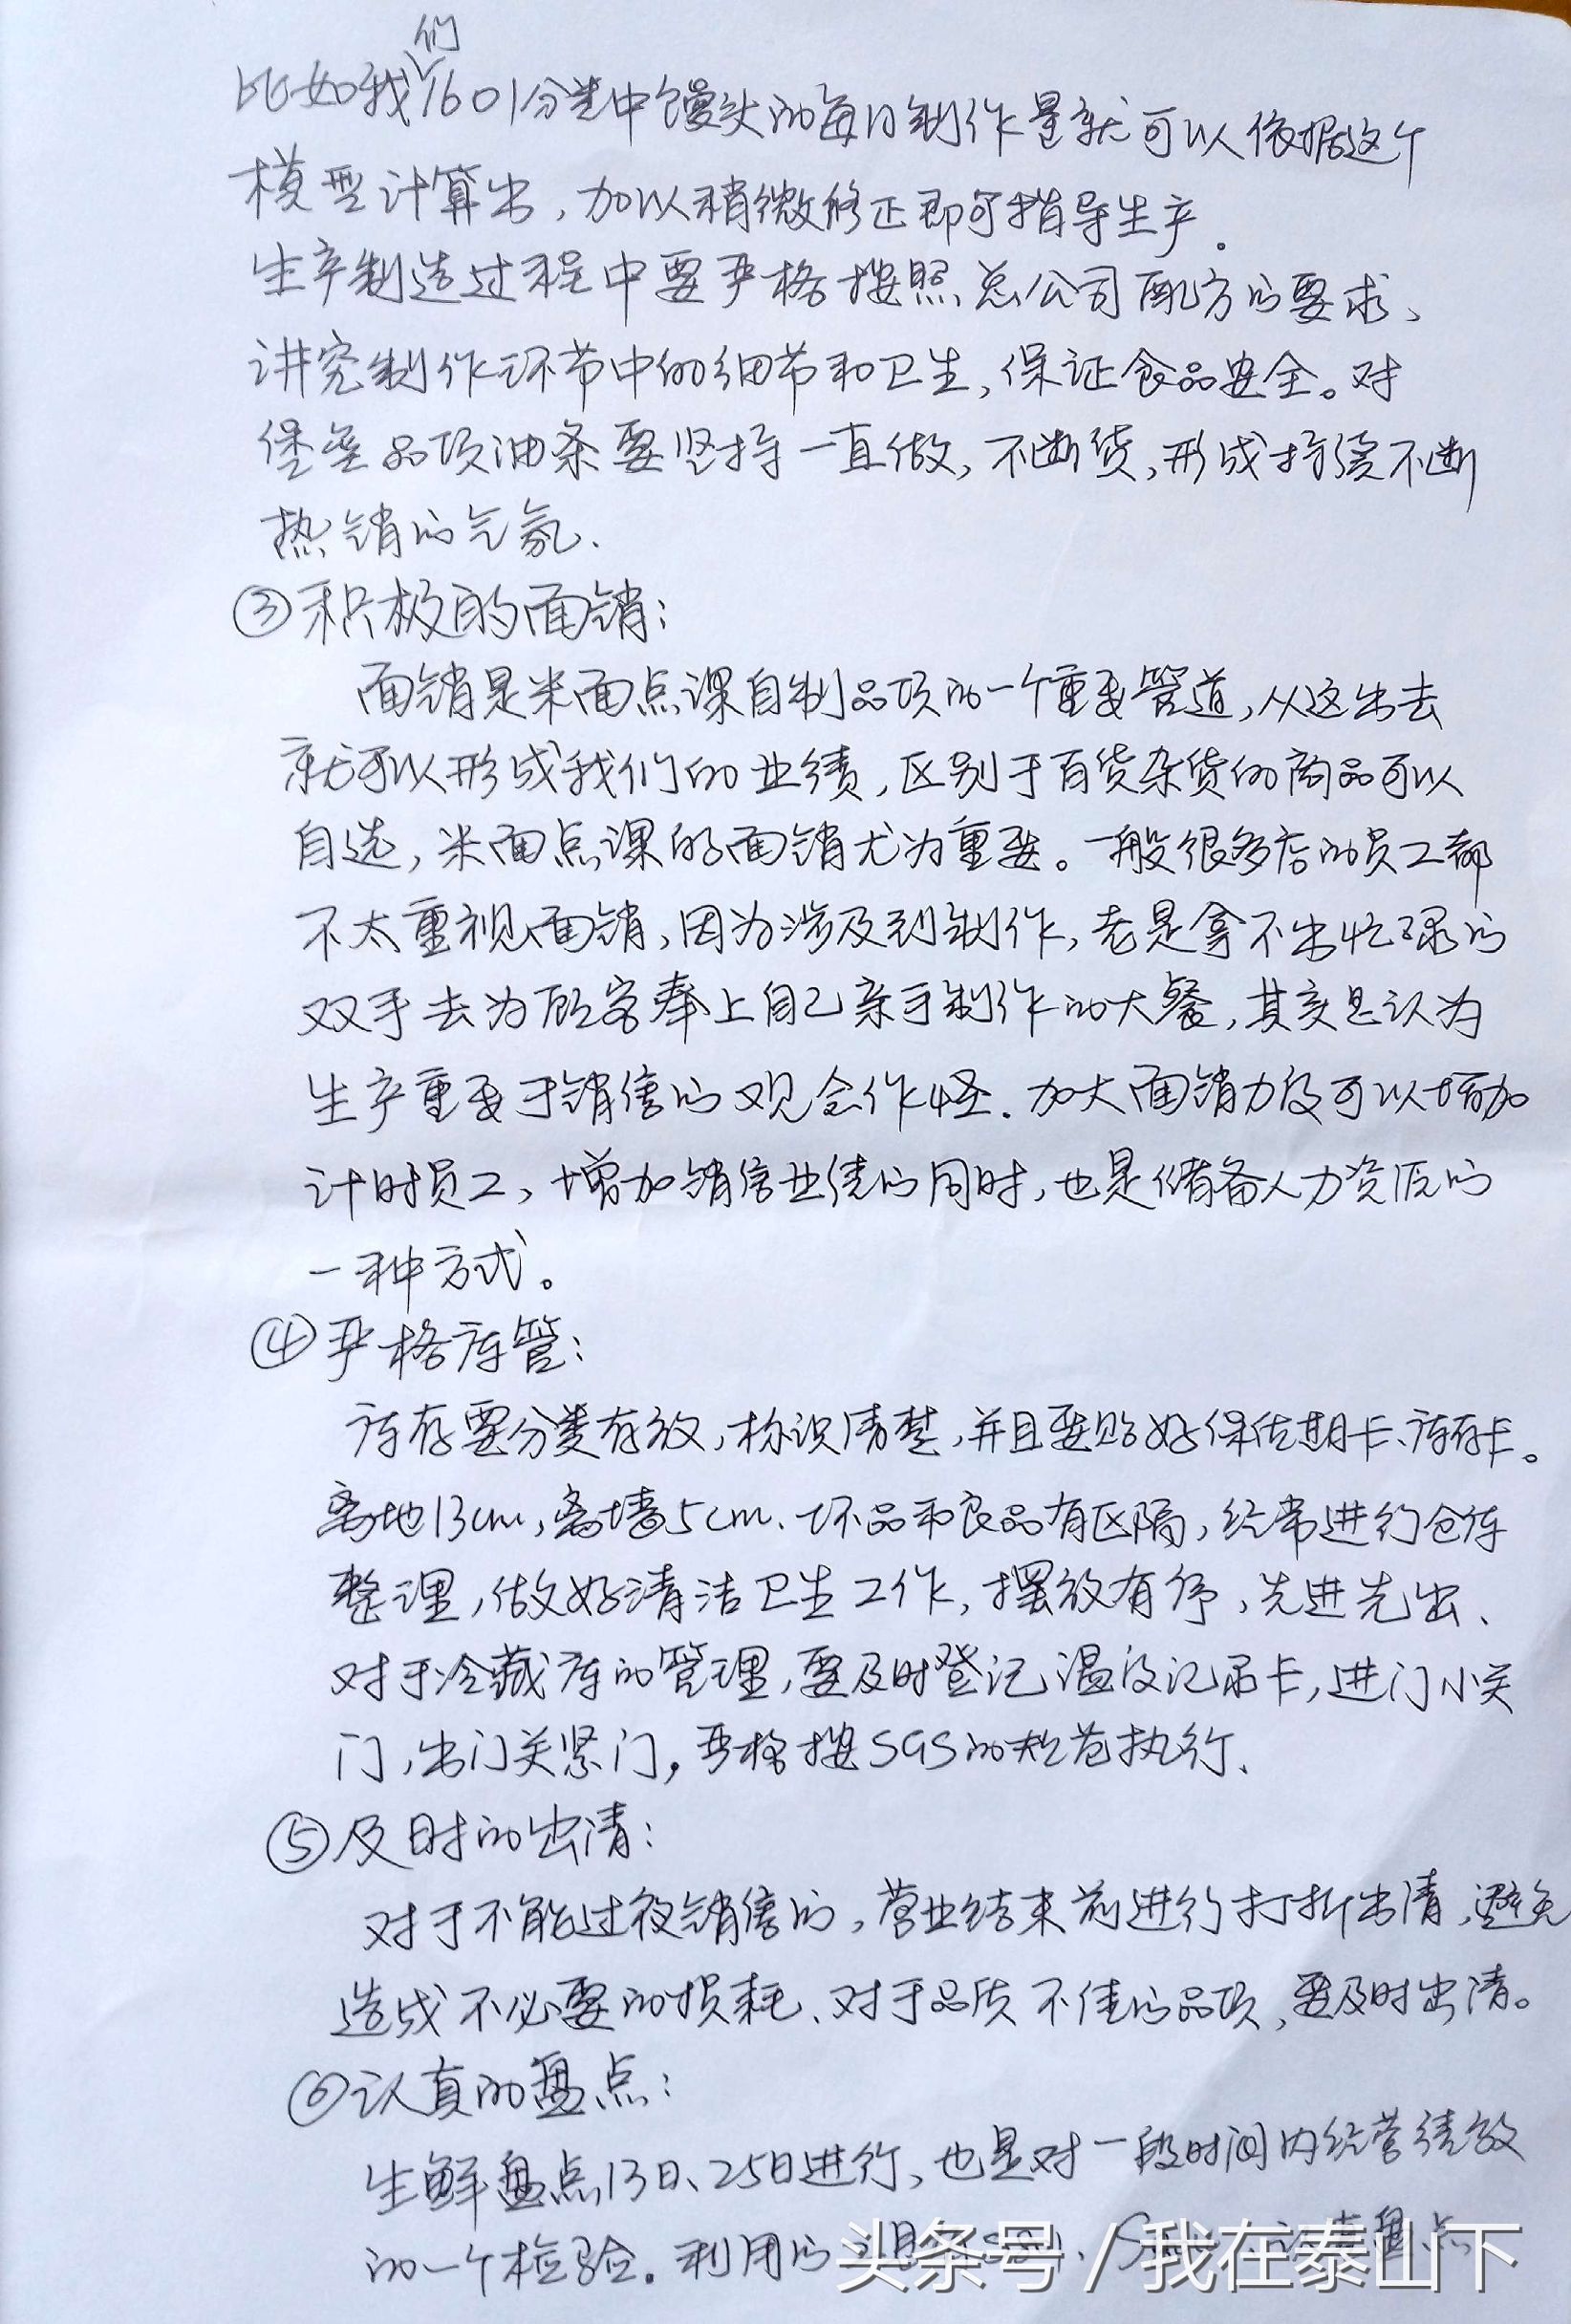 比如我们1601分类中馒头的每日制作量就可以依据这个
模型计算出,加以稍微修正即可指导生产.
生产制造过程中要严格按照总公司配方的要求、
讲究制作环节中的细节和卫生,保证食品安全。对
堡垒品项油条要坚持一直做,不断货,形成持续不断
热销的气氛.
③积极的面销:
面销是米面点课自制品项的一个重要管道,从这出去
就可以形成我们的业绩,区别于百货杂货的商品可以
自选,米面点课的面销尤为重要。一般很多店的员工都
不太重视面销,因为涉及到制作,老是拿不出忙碌的
双手去为顾客奉上自己亲手制作的大餐,其实是认为
生产重要于销售的观念作怪.加大面销力度可以增加
计时员工,增加销售业绩的同时,也是储备人力资源的
一种方式。
④严格库管:
库存要分类存放,标识清楚,并且要贴好保质期卡、库存卡。
离地13cm,离墙5cm、坏品和良品有区隔,经常进行仓库
整理,做好清洁卫生工作,摆放有序、先进先出、
对于冷藏库的管理,要及时登记温度记录卡,进门小关
门,出门关紧门,严格按SGS的规范执行.
⑤及时的出清:
对于不能过夜销售的,营业结束前进行打折出清,避免
造成不必要的损耗、对于品质不佳的品项,要及时出清。
⑥认真的盘点:
生鲜盘点13日、25日进行,也是对一段时间内经营绩效
的一个检验。利用的 盘点
头条号/我在泰山下